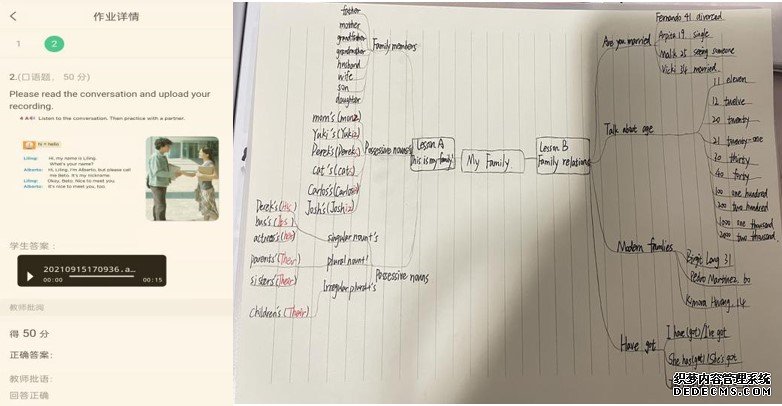 作业详情
1 2
2.(口语题, 50 分)
Please read the conversation and upload your
recording.
4 A Listen to the conversation. Then practice with a partner.
hi = hello
Liling: Hi, my name is Liling.
What's your name?
Alberto: Hi, Liling, I'm Alberto, but please call
me Beto. It's my nickname.
Liling: Okay, Beto. Nice to meet you.
Alberto: It's nice to meet you, too.
学生答案:
20210915170936.a...
00:00 00:15
教师批阅
得 50 分
正确答案:
教师批语:
回答正确
father
mother
grandfather
grandmother
husband
wife
son
daughter
Family members
mom's
Yuki's
Derek's (Derek
cat's (cat
Carlos's
Josh's
Possessive nouns
Derek's (His)
bus's
actress's
singular noun + 's
parents' (Their)
plural noun + '
sisters' (Their)
Irregular plural + 's
Children's (Their)
Possessive nouns
Lesson A
This is my family
My Family
Lesson B
Family relations
Are you married
Fernando 41 divorced
Arpita 19 single
Malik 28 seeing someone
Vicki 34 married
Talk about age
11 eleven
12 twelve
20 twenty
21 twenty-one
30 thirty
40 forty
100 one hundred
200 two hundred
1000 one thousand
2000 two thousand
Modern families
Birgit Lang 31
Pedro Martinez 60
Kimora Hwang 14
Have got
I have (got) / I've got
She has (got) / She's got
织梦内容管理系统
DEDECMS.COM